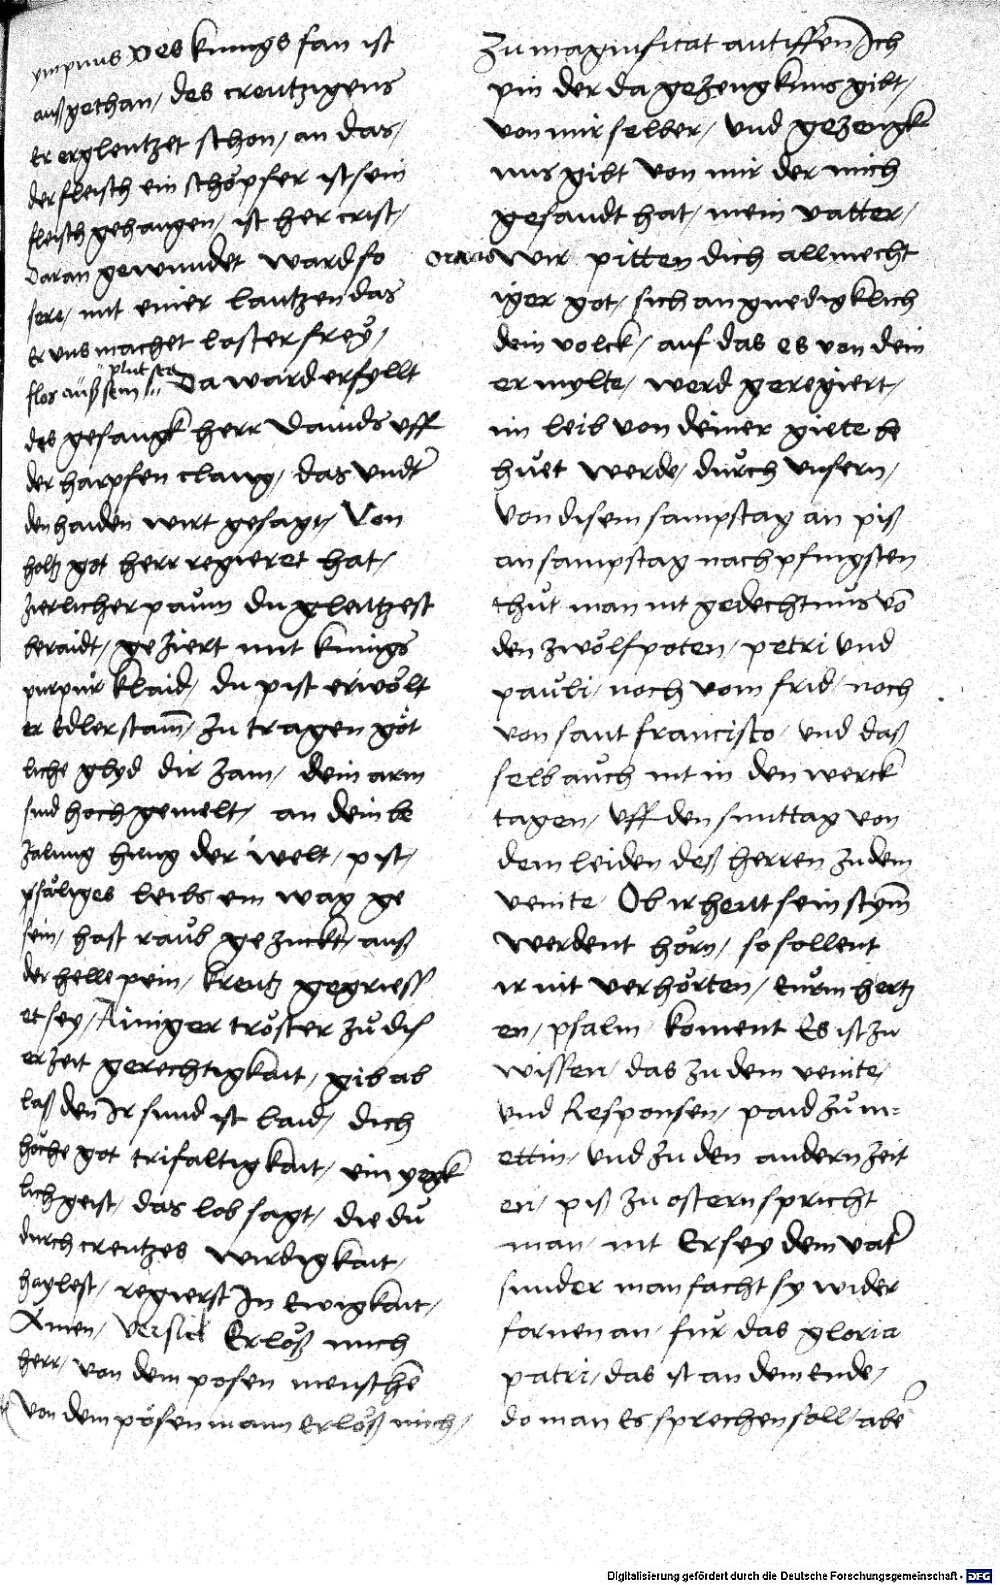 ympnus Des kunigs fan ist
auß gethan / des creutzigens
er erglentzet schon / an das /
der fleisch ein schöpfer ist sein
fleisch gehangen / ist her crist /
Daran gewundet ward so
sere / mit einer lantzen das
er uns machet laster frey /
flos auß sein Da ward erfyllt
plut ser
des gesangk herr Dauids uff
der harpfen clang / das undter
den haiden wirt gesagt / Von
holtz got herr regieret hat /
zierlicher paum du glentzest
beraidt / geziert mit kunigs
purpur klaid / du pist erwölt
er edler stam̄ / zu tragen göt
liche glyd dir zam / dein arm
sind hoch gemelt / an dein be
zalung hieng der welt / pist /
pfäliges leibs ein wag ge
sein / hast raub gezuckt / auß
der helle pein / kreutz gegriess
et sey / Ainiger tröster zu dis
er zeit gerechtigkait / gib ab
laß den Ir sund ist laid / dich
höche got trifaltigkait / ein yegk
lich geist / das lob sagt / die du
durch creutzes wirdigkait /
haylest / regierst In ewigkait /
Amen / Versickel Erlöß mich
herr / von dem posen menschē
Von dem pösen mann erlöß mich /
Zu maginficat antiffen Ich
pin der da gezeugknus gibt /
von mir selber / und gezeugk
nus gibt von mir der mich
gesandt hat / mein vatter /
oracio Wir pitten dich allmecht
iger got / sich an gnedigklich
dein volck / auf das es von dein
er mylte / werd geregiert /
im leib von deiner giete be
huet werde / durch unsern /
Von disem sampstag an piß
an sampstag nach pfingsten
thut man nit gedechtnus vō
den zwölfpoten / petri und
pauli / noch vom frid / noch
von sant francisco / und daß
selb auch nit in den werck
tagen / uff den mittag von
dem leiden deß herren zu dem
venite / Ob ir heut sein stym̄
werdent hörn / so sollent
ir nit verhörten / eurin hertz
en / psalm / koment Es ist zu
wissen / das zu dem venite /
und Responsen / paid zu m=
ettin / und zu den andern zeit
en / piß zu ostern spricht
man / nit Er sey dem vater
sunder man facht sy wider
fornen an / für das gloria
patri / das ist an dem ende /
do man es sprechen soll / aber
Digitalisierung gefördert durch die Deutsche Forschungsgemeinschaft - DFG